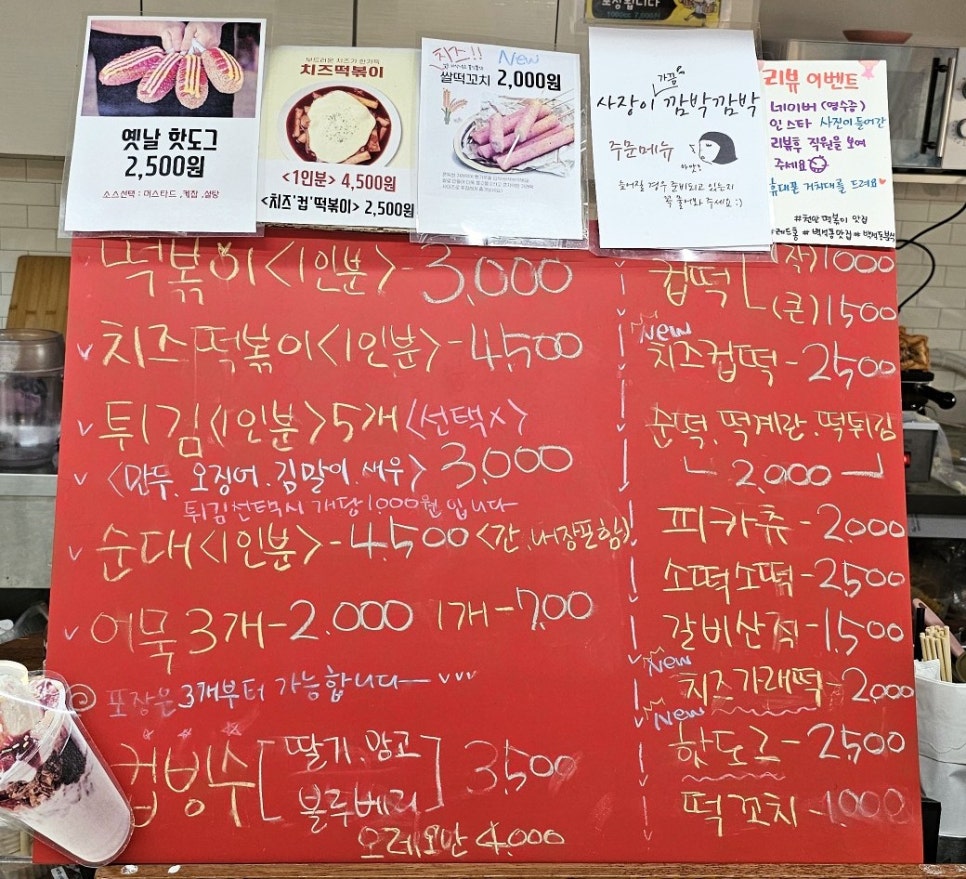 옛날 핫도그
2,500원
소스선택 : 머스타드, 케찹, 설탕
치즈떡볶이
<1인분> 4,500원
<치즈'컵'떡볶이> 2,500원
치즈!! New
쌀떡꼬치 2,000원
가끔
사장이 깜박깜박
주문메뉴
늦어질 경우 준비되고 있는지
꼭 물어봐 주세요 :)
리뷰 이벤트
네이버 (영수증)
인스타 사진이 들어간
리뷰후 직원을 보여
주세요
휴대폰 거치대를 드려요
#천안 떡볶이 맛집
떡볶이<1인분>-3,000
치즈떡볶이<1인분>-4,500
튀김<1인분>5개<선택x>
<만두.오징어.김말이.새우> 3,000
튀김선택시 개당 1,000원 입니다
순대<1인분>-4,500<간.내장포함>
어묵3개-2,000 1개-700
포장은 3개부터 가능합니다
컵빙수[딸기.망고
블루베리] 3,500
오레오만 4,000
컵떡[(작)1000
(큰)1500
New
치즈컵떡-2500
순떡.떡계란.떡튀김
2,000
피카츄-2,000
소떡소떡-2500
갈비산적-1,500
New
치즈가래떡-2,000
New
핫도그-2500
떡꼬치-1000